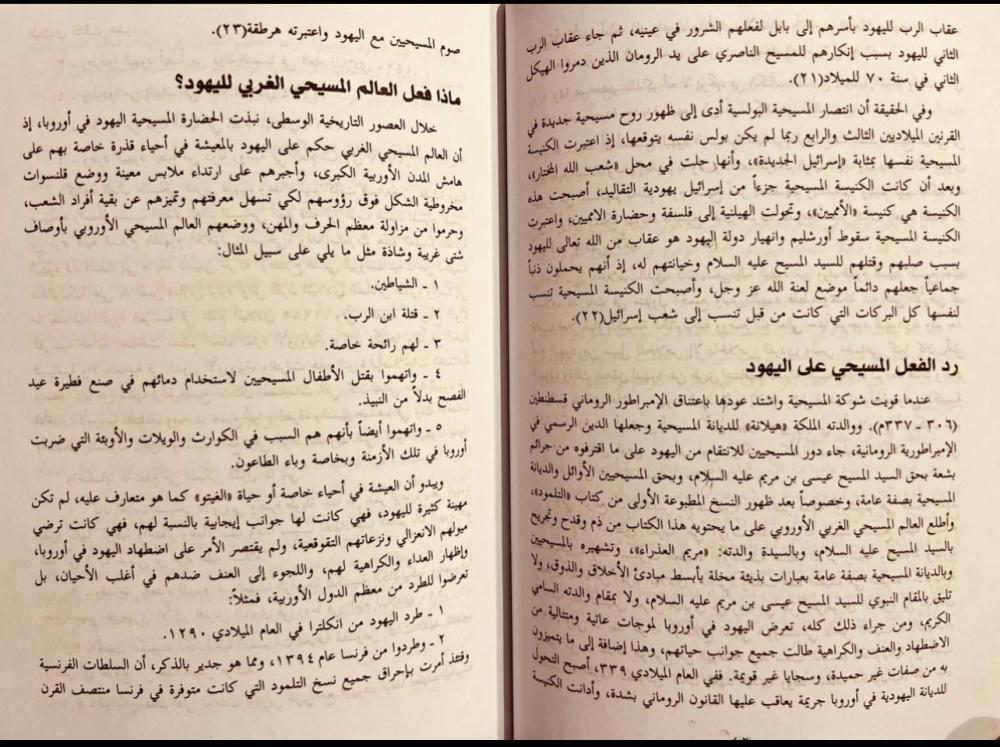 عقاب الرب لليهود بأسرهم إلى بابل لفعلهم الشرور في عينيه، ثم جاء عقاب الرب
الثاني لليهود بسبب إنكارهم للمسيح الناصري على يد الرومان الذين دمروا الهيكل
الثاني في سنة ٧٠ للميلاد(٢١).
وفي الحقيقة أن انتصار المسيحية البولسية أدى إلى ظهور روح مسيحية جديدة في
القرنين الميلاديين الثالث والرابع ربما لم يكن بولس نفسه يتوقعها، إذ اعتبرت الكنيسة
المسيحية نفسها بمثابة «إسرائيل الجديدة»، وأنها حلت في محل «شعب الله المختار»،
وبعد أن كانت الكنيسة المسيحية جزءاً من إسرائيل يهودية التقاليد، أصبحت هذه
الكنيسة هي كنيسة «الأمميين»، وتحولت الهيلنية إلى فلسفة وحضارة الامميين، واعتبرت
الكنيسة المسيحية سقوط أورشليم وانهيار دولة اليهود هو عقاب من الله تعالى لليهود
بسبب صلبهم وقتلهم للسيد المسيح عليه السلام وخيانتهم له، إذ أنهم يحملون ذنباً
جماعياً جعلهم دائماً موضع لعنة الله عز وجل، وأصبحت الكنيسة المسيحية تنسب
لنفسها كل البركات التي كانت من قبل تنسب إلى شعب إسرائيل(٢٢).
رد الفعل المسيحي على اليهود
عندما قويت شوكة المسيحية واشتد عودها بإعتناق الإمبراطور الروماني قسطنطين
(٣٠٦ - ٣٣٧م). ووالدته الملكة «هيلانة» للديانة المسيحية وجعلها الدين الرسمي في
الإمبراطورية الرومانية، جاء دور المسيحيين للانتقام من اليهود على ما اقترفوه من جرائم
بشعة بحق السيد المسيح عيسى بن مريم عليه السلام، وبحق المسيحيين الأوائل والديانة
المسيحية بصفة عامة، وخصوصاً بعد ظهور النسخ المطبوعة الأولى من كتاب «التلمود»،
وأطلع العالم المسيحي الغربي الأوروبي على ما يحتويه هذا الكتاب من ذم وقدح وتجريح
بالسيد المسيح عليه السلام، وبالسيدة والدته: «مريم العذراء»، وتشهيره بالمسيحيين
وبالديانة المسيحية بصفة عامة بعبارات بذيئة مخلة بأبسط مبادئ الأخلاق والذوق، ولا
تليق بالمقام النبوي للسيد المسيح عيسى بن مريم عليه السلام، ولا بمقام والدته السامي
الكريم، ومن جراء ذلك كله، تعرض اليهود في أوروبا لموجات عاتية ومتتالية من
الاضطهاد والعنف والكراهية طالت جميع جوانب حياتهم، وهذا إضافة إلى ما يتميزون
به من صفات غير حميدة، وسجايا غير قويمة. ففي العام الميلادي ٣٣٩، أصبح التحول
للديانة اليهودية في أوروبا جريمة يعاقب عليها القانون الروماني بشدة، وأدانت الكنيسة
صوم المسيحيين مع اليهود واعتبرته هرطقة(٢٣).
ماذا فعل العالم المسيحي الغربي لليهود؟
خلال العصور التاريخية الوسطى، نبذت الحضارة المسيحية اليهود في أوروبا، إذ
أن العالم المسيحي الغربي حكم على اليهود بالمعيشة في أحياء قذرة خاصة بهم على
هامش المدن الأوربية الكبرى، وأجبرهم على ارتداء ملابس معينة ووضع قلنسوات
مخروطية الشكل فوق رؤوسهم لكي تسهل معرفتهم وتميزهم عن بقية أفراد الشعب،
وحرموا من مزاولة معظم الحرف والمهن، ووضعهم العالم المسيحي الأوروبي بأوصاف
شتى غريبة وشاذة مثل ما يلي على سبيل المثال:
١ - الشياطين.
٢ - قتلة ابن الرب.
٣ - لهم رائحة خاصة.
٤ - واتهموا بقتل الأطفال المسيحيين لاستخدام دمائهم في صنع فطيرة عيد
الفصح بدلاً من النبيذ.
٥ - واتهموا أيضاً بأنهم هم السبب في الكوارث والويلات والأوبئة التي ضربت
أوروبا في تلك الأزمنة وبخاصة وباء الطاعون.
ويبدو أن العيشة في أحياء خاصة أو حياة «الغيتو» كما هو متعارف عليه، لم تكن
مهينة كثيرة لليهود، فهي كانت لها جوانب إيجابية بالنسبة لهم، فهي كانت ترضي
ميولهم الانعزالي ونزعاتهم التقوقعية، ولم يقتصر الأمر على اضطهاد اليهود في أوروبا،
وإظهار العداء والكراهية لهم، واللجوء إلى العنف ضدهم في أغلب الأحيان، بل
تعرضوا للطرد من معظم الدول الأوربية، فمثلاً:
١ - طرد اليهود من انكلترا في العام الميلادي ١٢٩٠.
٢ - وطردوا من فرنسا عام ١٣٩٤، ومما هو جدير بالذكر، أن السلطات الفرنسية
وقتئذ أمرت بإحراق جميع نسخ التلمود التي كانت متوفرة في فرنسا منتصف القرن